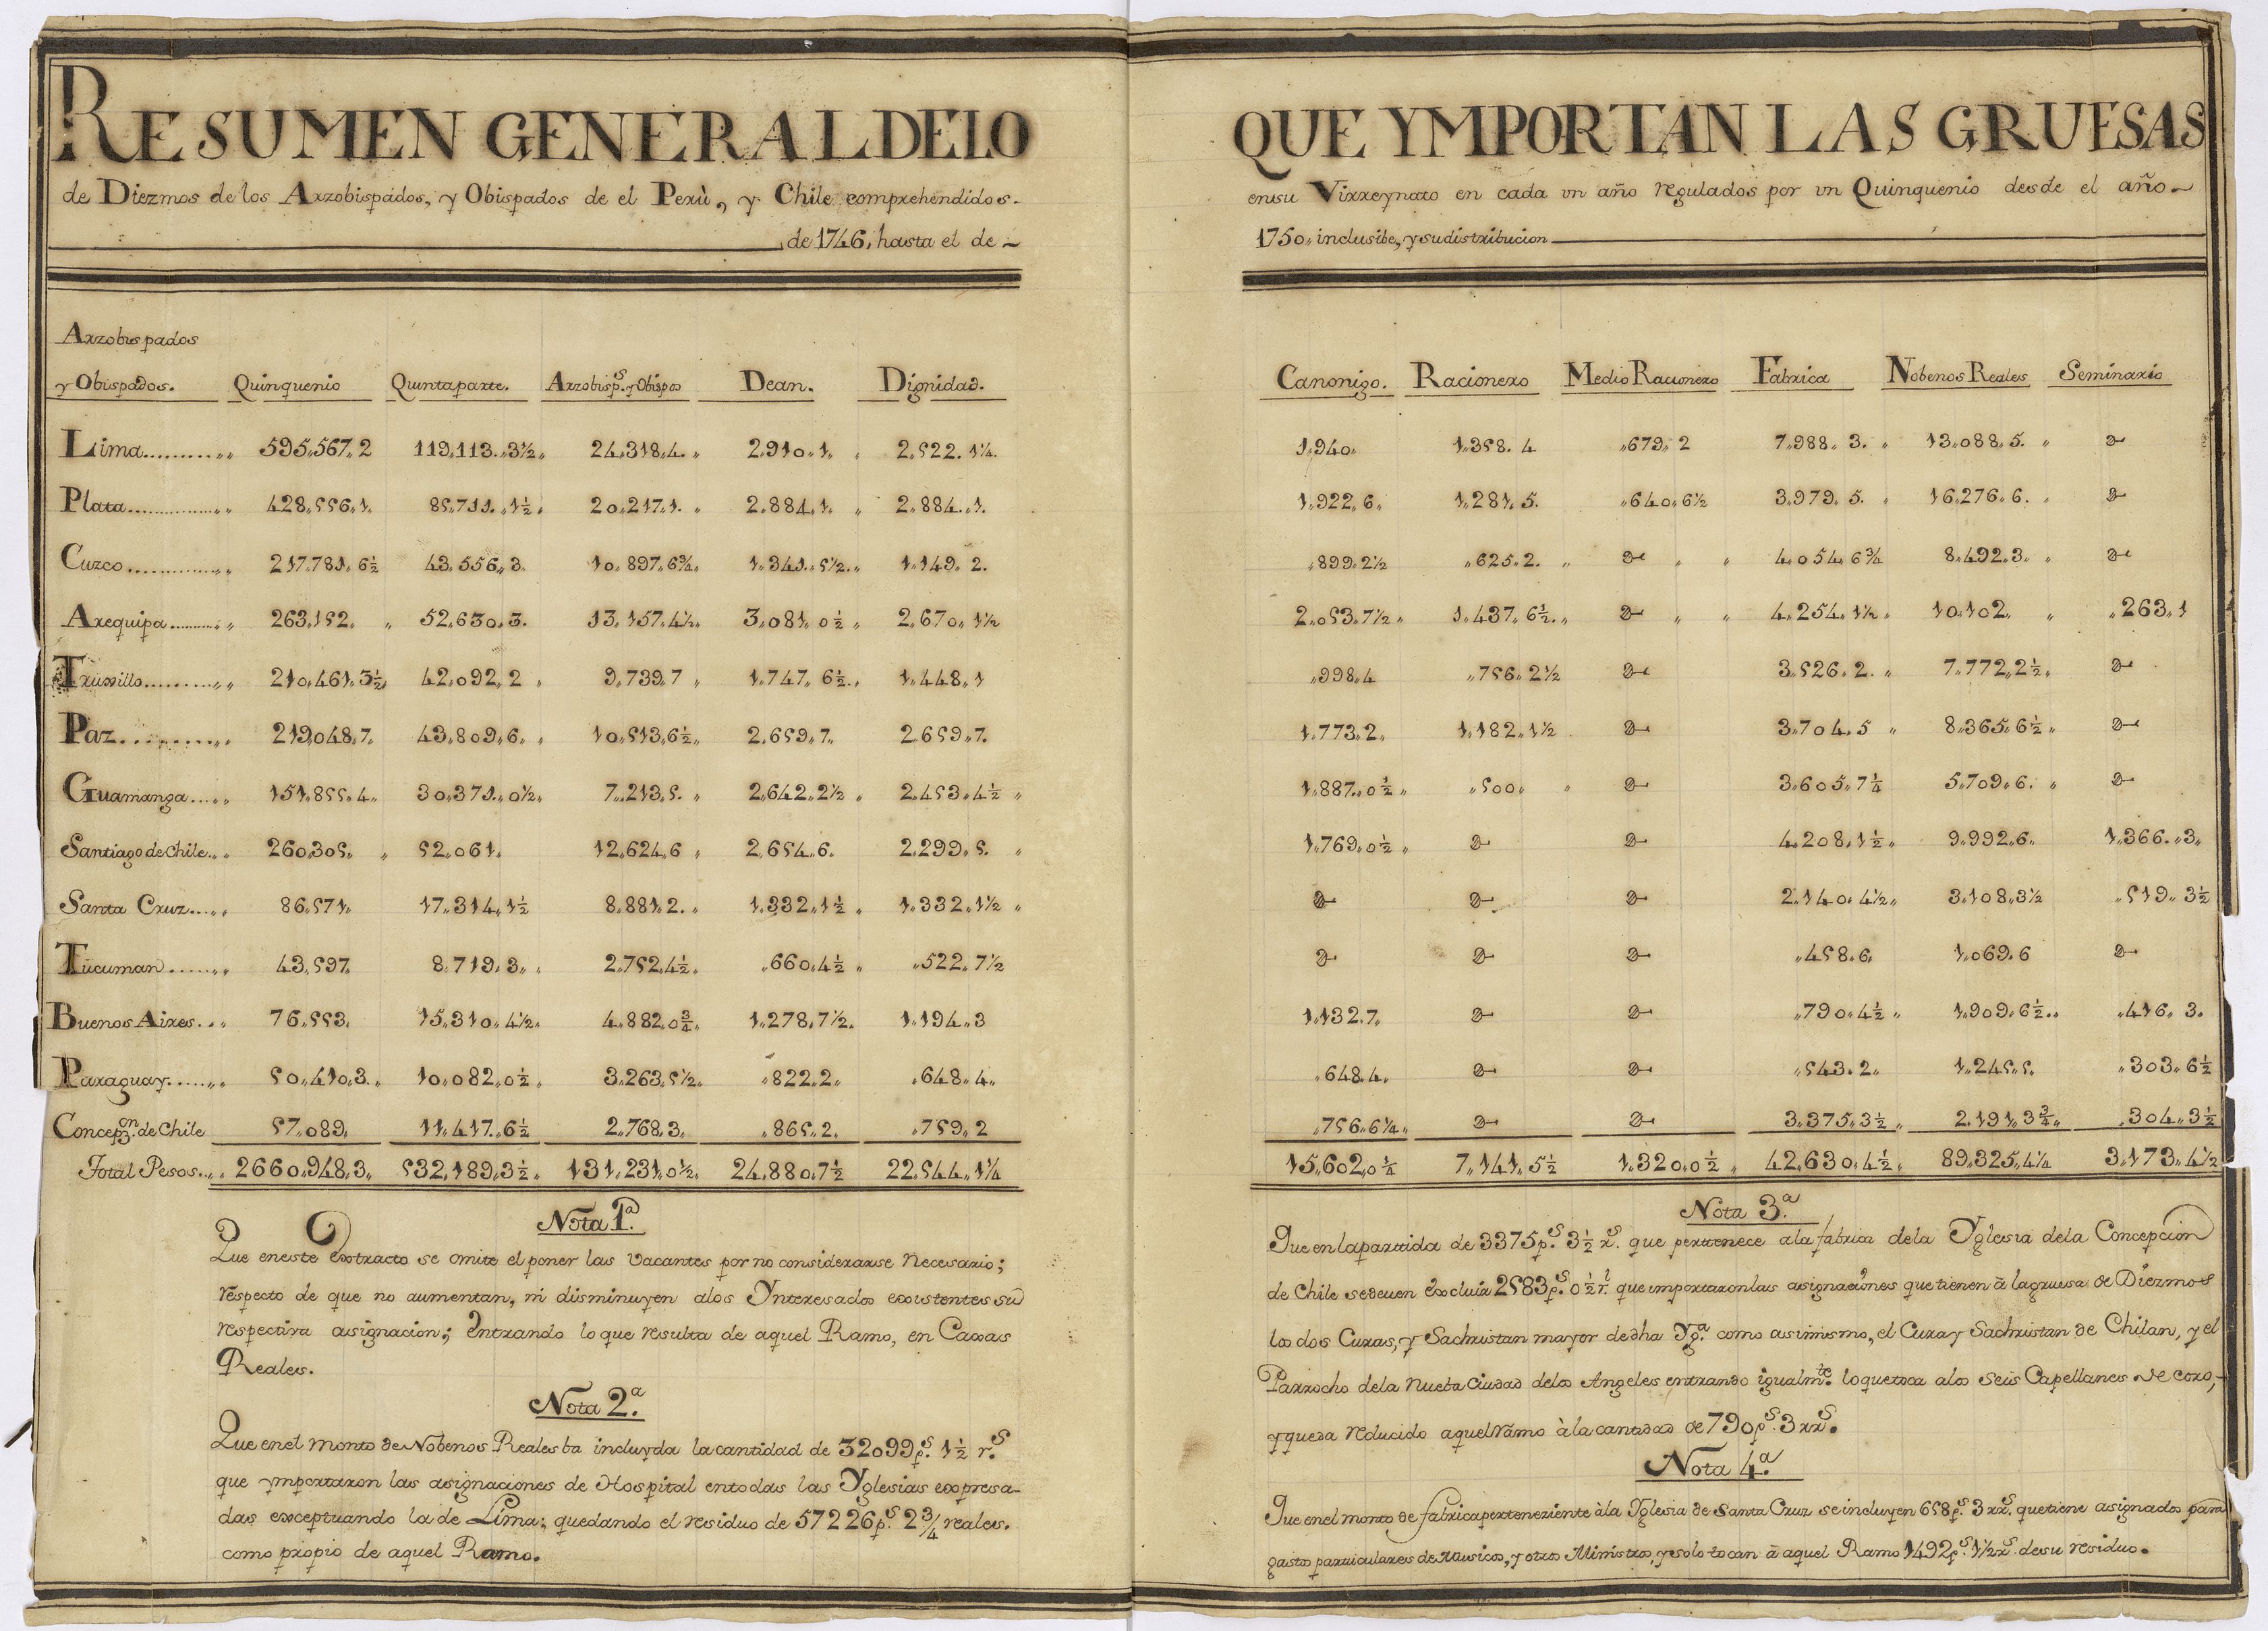 RESUMEN GENERAL DE LO QUE YMPORTAN LAS GRUESAS
de Diezmos de los Arzobispados, y Obispados de el Perù, y Chile comprehendidos en su Virreynato en cada un año regulados por un Quinquenio desde el año
de 1746, hasta el de 1750, inclusibe, y su distribucion
Arzobispados
y Obispados. Quinquenio Quinta parte. Arzobisp.s y Obispos Dean. Dignidad. Canonigo. Racionero Medio Racionero Fabrica Nobenos Reales Seminario
Lima 595,567,2 119,113,3½ 24,318,4 2,910,1 2,522,1¼ 1,940 1,358,4 679,2 7,988,3 13,088,5 0
Plata 428,556,1 85,711,1½ 20,217,1 2,884,1 2,884,1 1,922,6 1,281,5 640,6½ 3,979,5 16,276,6 0
Cuzco 217,781,6½ 43,556,3 10,897,6¾ 1,341,5½ 1,149,2 899,2½ 625,2 0 4,054,6¾ 8,492,3 0
Arequipa 263,152 52,630,3 13,157,4½ 3,081,0½ 2,670,1½ 2,053,7½ 1,437,6½ 0 4,254,1½ 10,102 263,1
Truxillo 210,461,3½ 42,092,2 9,739,7 1,747,6½ 1,448,1 998,4 756,2½ 0 3,526,2 7,772,2½ 0
Paz 219,048,7 43,809,6 10,513,6½ 2,659,7 2,659,7 1,773,2 1,182,1½ 0 3,704,5 8,365,6½ 0
Guamanga 151,855,4 30,371,0½ 7,213,5 2,642,2½ 2,453,4½ 1,887,0½ 500 0 3,605,7¼ 5,709,6 0
Santiago de Chile 260,305 52,061 12,624,6 2,654,6 2,299,5 1,769,0½ 0 0 4,208,1½ 9,992,6 1,366,3
Santa Cruz 86,571 17,314,1½ 8,881,2 1,332,1½ 1,332,1½ 0 0 0 2,140,4½ 3,108,3½ 519,3½
Tucuman 43,597 8,719,3 2,752,4½ 660,4½ 522,7½ 0 0 0 458,6 1,069,6 0
Buenos Aires 76,553 15,310,4½ 4,882,0¾ 1,278,7½ 1,194,3 1,132,7 0 0 790,4½ 1,909,6½ 416,3
Paraguay 50,410,3 10,082,0½ 3,263,5½ 822,2 648,4 648,4 0 0 543,2 1,245,5 303,6½
Concepon. de Chile 57,089 11,417,6½ 2,768,3 865,2 759,2 756,6¼ 0 0 3,375,3½ 2,191,3¾ 304,3½
Total Pesos 2660,948,3 532,189,3½ 131,231,0½ 24,880,7½ 22,544,1¼ 15,602,0¼ 7,141,5½ 1,320,0½ 42,630,4½ 89,325,4¼ 3,173,4½
Nota 1.a
Que en este Extracto se omite el poner las vacantes por no considerarse necesario;
respecto de que no aumentan, ni disminuyen a los Ynteresados existentes su
respectiva asignacion; entrando lo que resulta de aquel Ramo, en Caxas
Reales.
Nota 2.a
Que en el monto de Nobenos Reales ba incluyda la cantidad de 32099p.s 1½ r.s
que ymportaron las asignaciones de Hospital en todas las Yglesias expresa-
das exceptuando la de Lima; quedando el residuo de 57226p.s 2¾ reales.
como propio de aquel Ramo.
Nota 3.a
Que en la partida de 3375p.s 3½ r.s que pertenece a la fabrica de la Yglesia de la Concepcion
de Chile se deuen excluir 2583p.s 0½ r.l que importaron las asignaciones que tienen à la gruesa de Diezmos
los dos Curas, y Sachristan mayor de dha Yg.a como asimismo, el Cura y Sachristan de Chilan, y el
Parrocho de la nueba Ciudad de los Angeles entrando igualm.te lo que toca a los seis Capellanes de coro,
y queda reducido aquel ramo à la cantidad de 790p.s 3 rr.s
Nota 4.a
Que en el monto de fabrica perteneziente à la Yglesia de Santa Cruz se incluyen 658p.s 3 rr.s que tiene asignados para
gastos particulares de Musicos, y otros Ministros, y solo tocan à aquel Ramo 1492p.s 1½ r.s de su residuo.